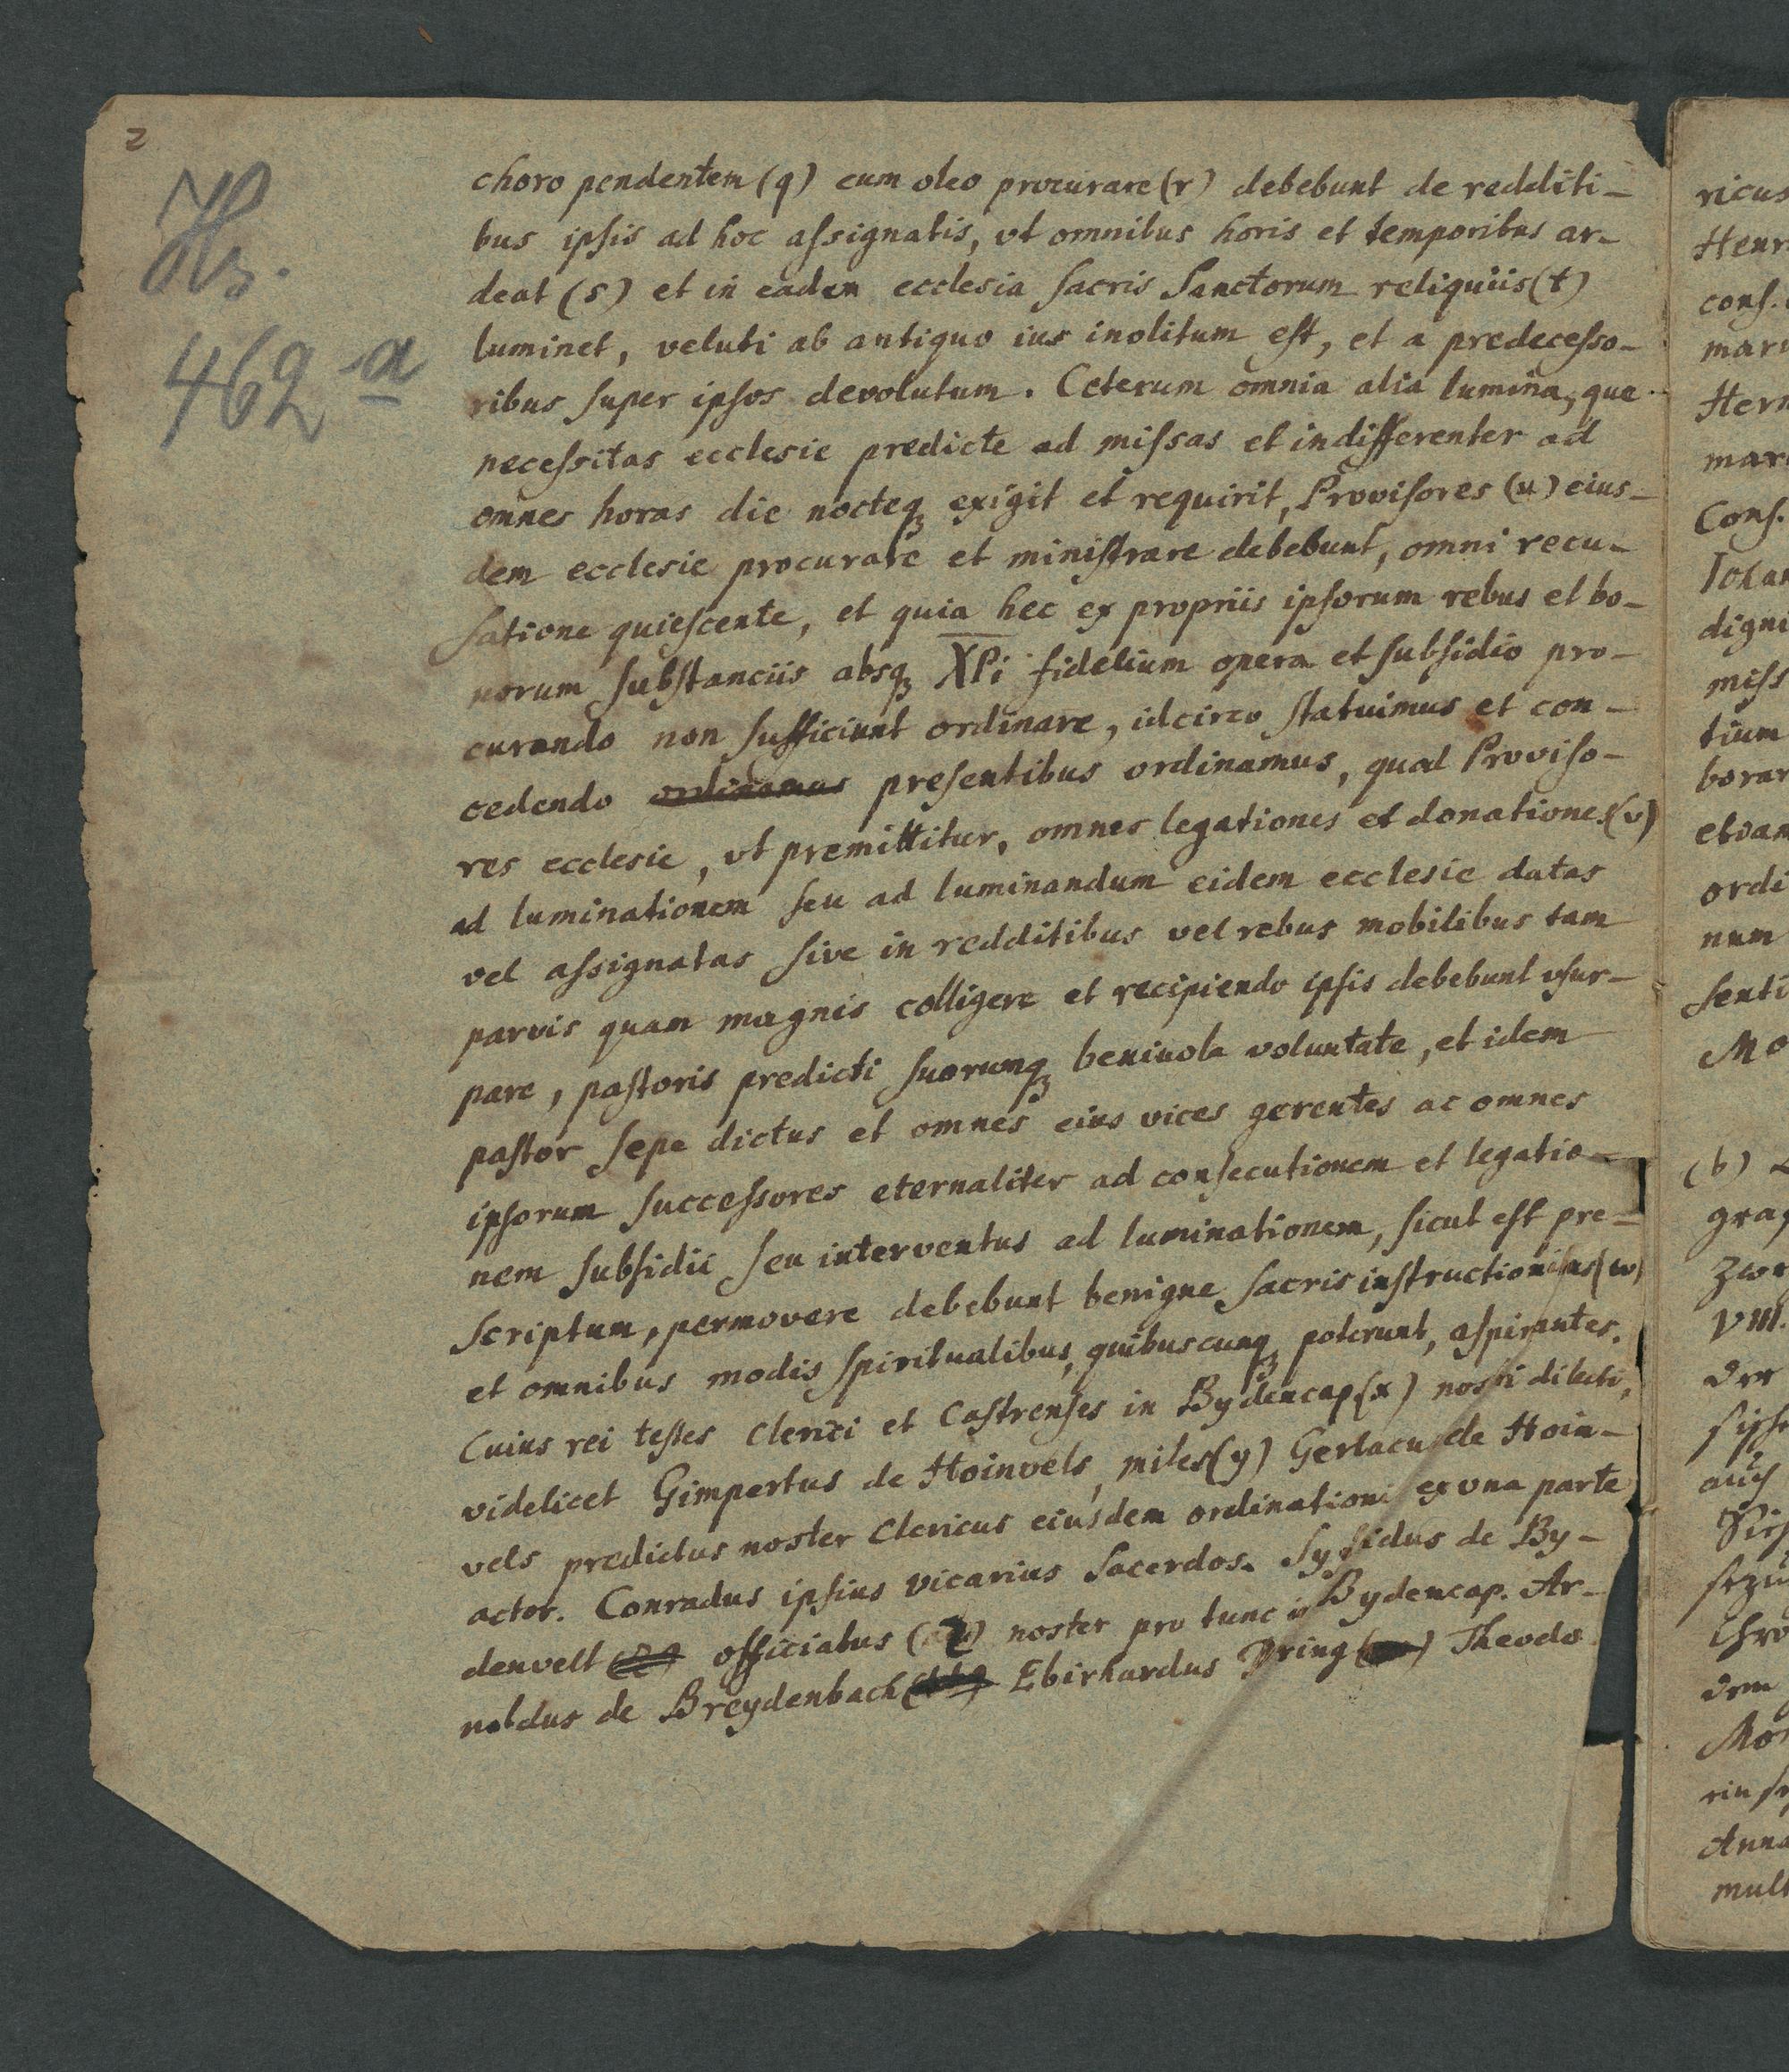 2
Hs.
462 a
choro pendentem (q) cum oleo procurare (r) debebunt de redditi-
bus ipsis ad hoc assignatis, vt omnibus horis et temporibus ar-
deat (s) et in eadem ecclesia sacris Sanctorum reliquiis (t)
luminet, veluti ab antiquo ius inolitum est, et a predecesso-
ribus super ipsos devolutum. Ceterum omnia alia lumina, que
necessitas ecclesie predicte ad missas et indifferenter ad
omnes horas die nocteq3 exigit et requirit, Provisores (u) eius-
dem ecclesie procurare et ministrare debebunt, omni recu-
satione quiescente, et quia hec ex propriis ipsorum rebus et bo-
norum substanciis absq3 XPi fidelium opera et subsidio pro-
curando non sufficiunt ordinare, idcirco statuimus et con-
cedendo ordinamus presentibus ordinamus, quod Proviso-
res ecclesie, vt premittitur, omnes legationes et donationes (v)
ad luminationem seu ad luminandum eidem ecclesie datas
vel assignatas sive in redditibus vel rebus mobilibus tam
parvis quam magnis colligere et recipiendo ipsis debebunt vsur-
pare, pastoris predicti suorumq3 benivola voluntate, et idem
pastor sepe dictus et omnes eius vices gerentes ac omnes
ipsorum successores eternaliter ad consecutionem et legatio-
nem subsidii seu interventus ad luminationem, sicut est pre-
scriptum, permovere debebunt benigne sacris instructionibus (w)
et omnibus modis spiritualibus, quibuscunq3 poterunt, aspirantes.
Cuius rei testes Clerici et Castrenses in Bydencap (x) nostri dilecti,
videlicet Gimpertus de Hoinvels, miles (y) Gerlacus de Hoin-
vels predictus noster Clericus eiusdem ordinationis ex vna parte
actor. Conradus ipsius vicarius Sacerdos. Syfidus de By-
denvelt officiatus (z) noster pro tunc in Bydencap. Ar-
noldus de Breydenbach Ebirhardus Dring Theodo
ricus
Henr
cons.
mar
Her
mar
Cons.
Johan
digni
miss
tium
borar
ordi
num
senti
Mo
(b)
VIII.
auch
Anna
mult